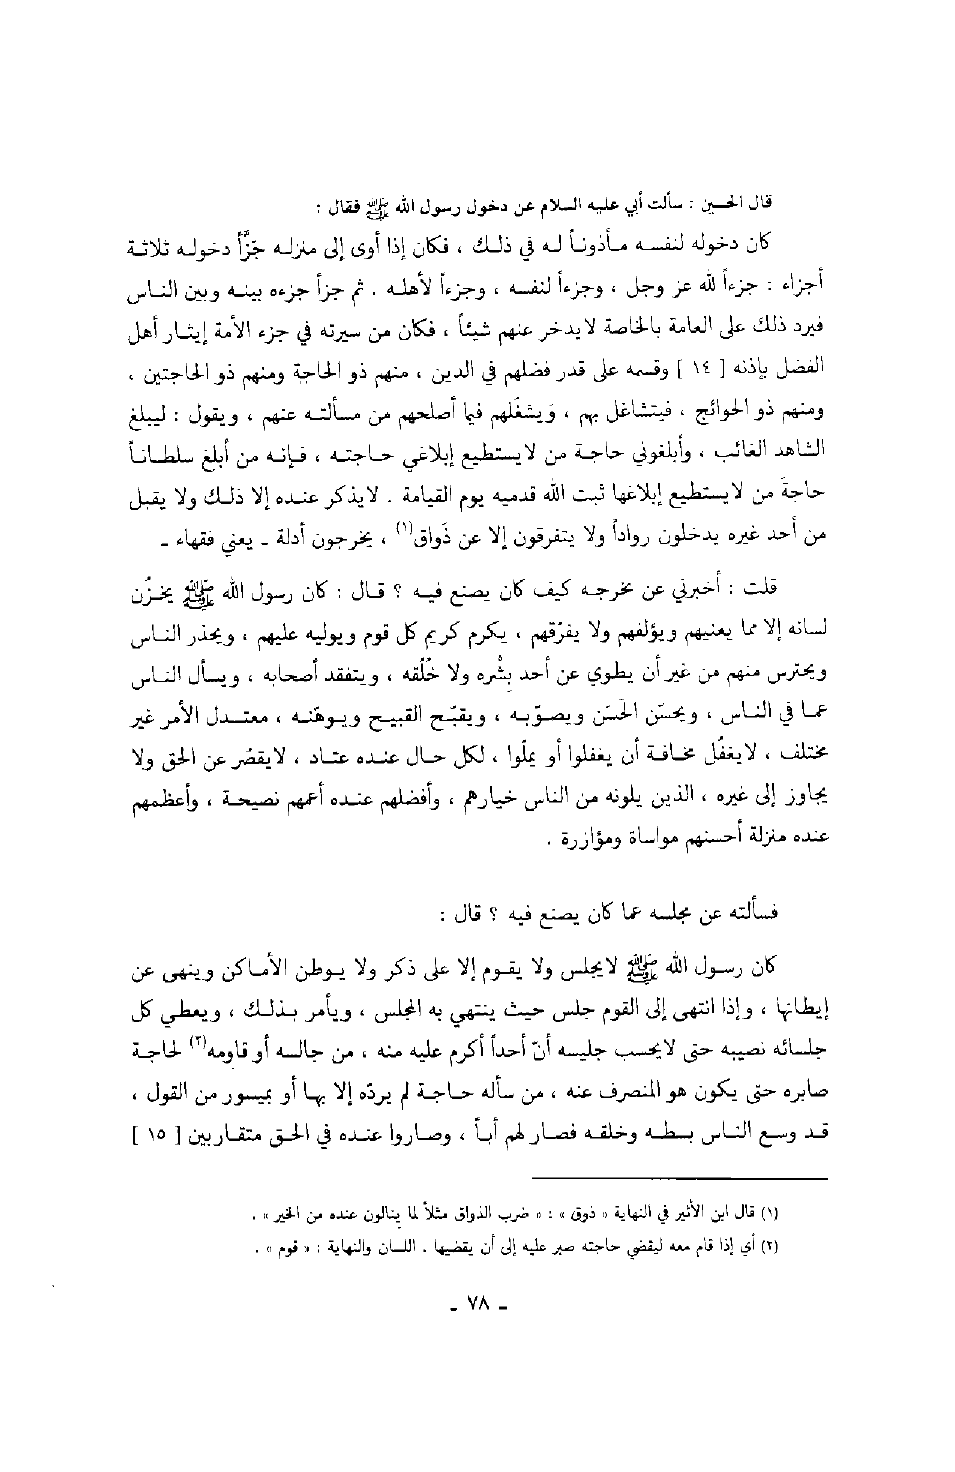 قال الحسين : سألت أبي عليه السلام عن دخول رسول الله ﷺ فقال :
كان دخوله لنفسه مأذوناً له في ذلك ، فكان إذا أوى إلى منزله جزَّأ دخوله ثلاثة
أجزاء : جزءاً لله عز وجل ، وجزءاً لنفسه ، وجزءاً لأهله . ثم جزأ جزءه بينه وبين الناس
فيرد ذلك على العامة بالخاصة لا يدخر عنهم شيئاً ، فكان من سيرته في جزء الأمة إيثار أهل
الفضل بإذنه [ ١٤ ] وقسمه على قدر فضلهم في الدين ، منهم ذو الحاجة ومنهم ذو الحاجتين ،
ومنهم ذو الحوائج ، فيتشاغل بهم ، وَيشغَلهم فيما أصلحهم من مسألته عنهم ، ويقول : ليبلغ
الشاهد الغائب ، وأبلغوني حاجة من لا يستطيع إبلاغي حاجته ، فإنه من أبلغ سلطاناً
حاجةَ من لا يستطيع إبلاغها ثبت الله قدميه يوم القيامة . لا يذكر عنده إلا ذلك ولا يقبل
من أحد غيره يدخلون رواداً ولا يتفرقون إلا عن ذَواق(١) ، يخرجون أدلة ـ يعني فقهاء ـ
قلت : أخبرني عن مخرجه كيف كان يصنع فيه ؟ قال : كان رسول الله ﷺ يخزُن
لسانه إلا مما يعنيهم ويؤلفهم ولا يفرّقهم ، يكرم كريم كل قوم ويوليه عليهم ، ويحذر الناس
ويحترس منهم من غير أن يطوي عن أحد بِشْره ولا خُلُقه ، ويتفقد أصحابه ، ويسأل الناس
عما في الناس ، ويحسّن الحَسَن ويصوّبه ، ويقبّح القبيح ويوهّنه ، معتدل الأمر غير
مختلف ، لا يغفُل مخافة أن يغفلوا أو يملّوا ، لكل حال عنده عتاد ، لا يقصّر عن الحق ولا
يجاوز إلى غيره ، الذين يلونه من الناس خيارهم ، وأفضلهم عنده أعمهم نصيحة ، وأعظمهم
عنده منزلة أحسنهم مواساة ومؤازرة .
فسألته عن مجلسه عما كان يصنع فيه ؟ قال :
كان رسول الله ﷺ لا يجلس ولا يقوم إلا على ذكر ولا يوطن الأماكن وينهى عن
إيطانها ، وإذا انتهى إلى القوم جلس حيث ينتهي به المجلس ، ويأمر بذلك ، ويعطي كل
جلسائه نصيبه حتى لا يحسب جليسه أنّ أحداً أكرم عليه منه ، من جالسه أو قاومه(٢) لحاجة
صابره حتى يكون هو المنصرف عنه ، من سأله حاجة لم يردّه إلا بها أو بميسور من القول ،
قد وسع الناس بسطه وخلقه فصار لهم أباً ، وصاروا عنده في الحق متقاربين [ ١٥ ]
(١) قال ابن الأثير في النهاية « ذوق » : « ضرب الذواق مثلاً لما ينالون عنده من الخير » .
(٢) أي إذا قام معه ليقضي حاجته صبر عليه إلى أن يقضيها . اللسان والنهاية : « قوم » .
ـ ٧٨ ـ